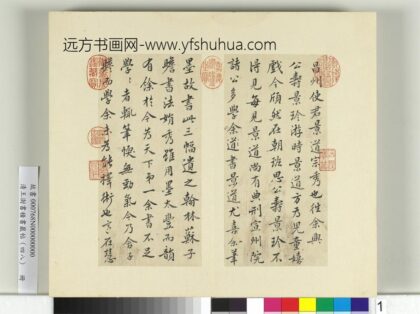 远方书画网-www.yfshuhua.com
昌州使君景道宗秀也往余與
公壽景珍游時景道方为兒童嬉
戲今頎然在朝班思公壽景珍不
得見每見景道尚有典刑宣州院
諸公多學余書景道尤喜余筆
墨故書此三幅遺之翰林蘇子
瞻書法娟秀雖用墨太豐而韻
有餘於今为天下第一余書不足
學學者輒筆愞無勁氣今乃舍子
瞻而學余未为能擇術也